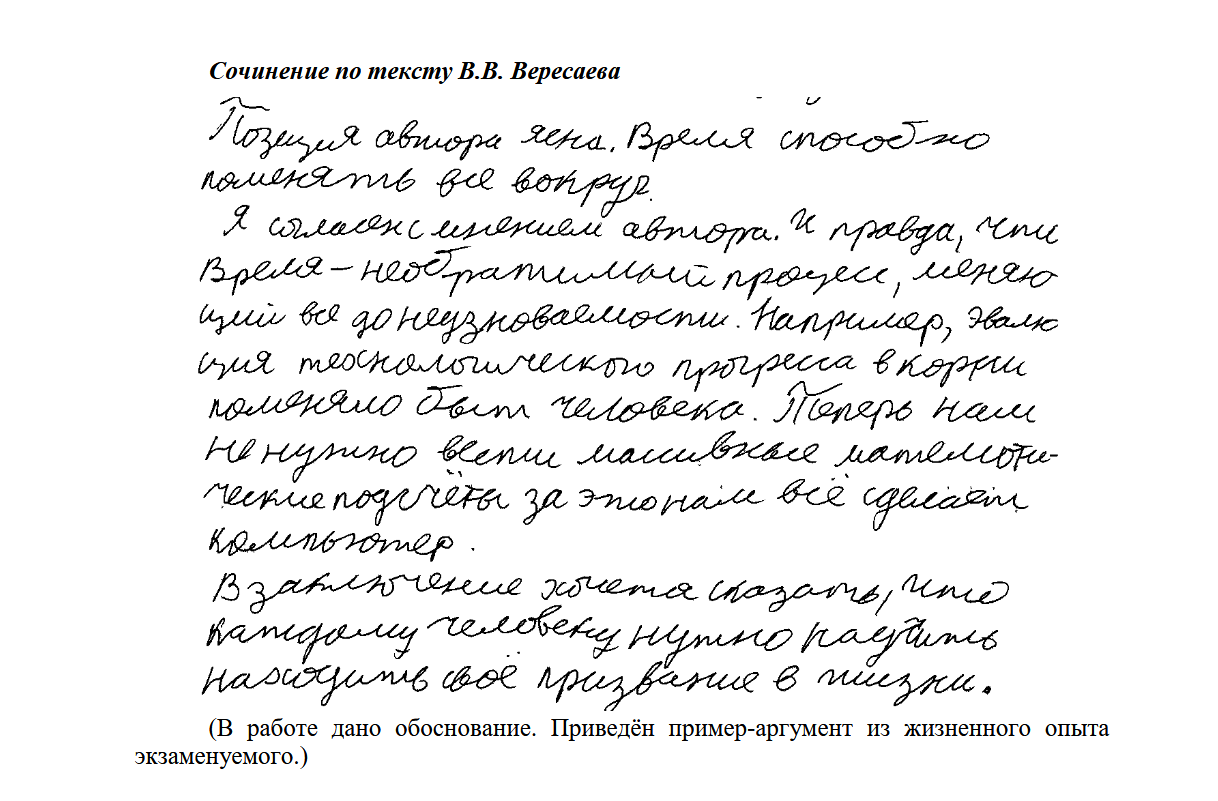 Сочинение по тексту В.В. Вересаева
Позиция автора ясна. Время способно
поменять все вокруг.
Я согласен с мнением автора. И правда, что
Время – необратимый процесс, меняю
щий все до неузноваемости. Например, эвалю
ция технологического прогресса в корни
поменяло быт человека. Теперь нам
не нужно вести массивные матемоти-
ческие подсчёты за это нам всё сделает
компьютер.
В заключение хочется сказать, что
каждому человеку нужно научить
находить своё призвание в жизни.
(В работе дано обоснование. Приведён пример-аргумент из жизненного опыта
экзаменуемого.)